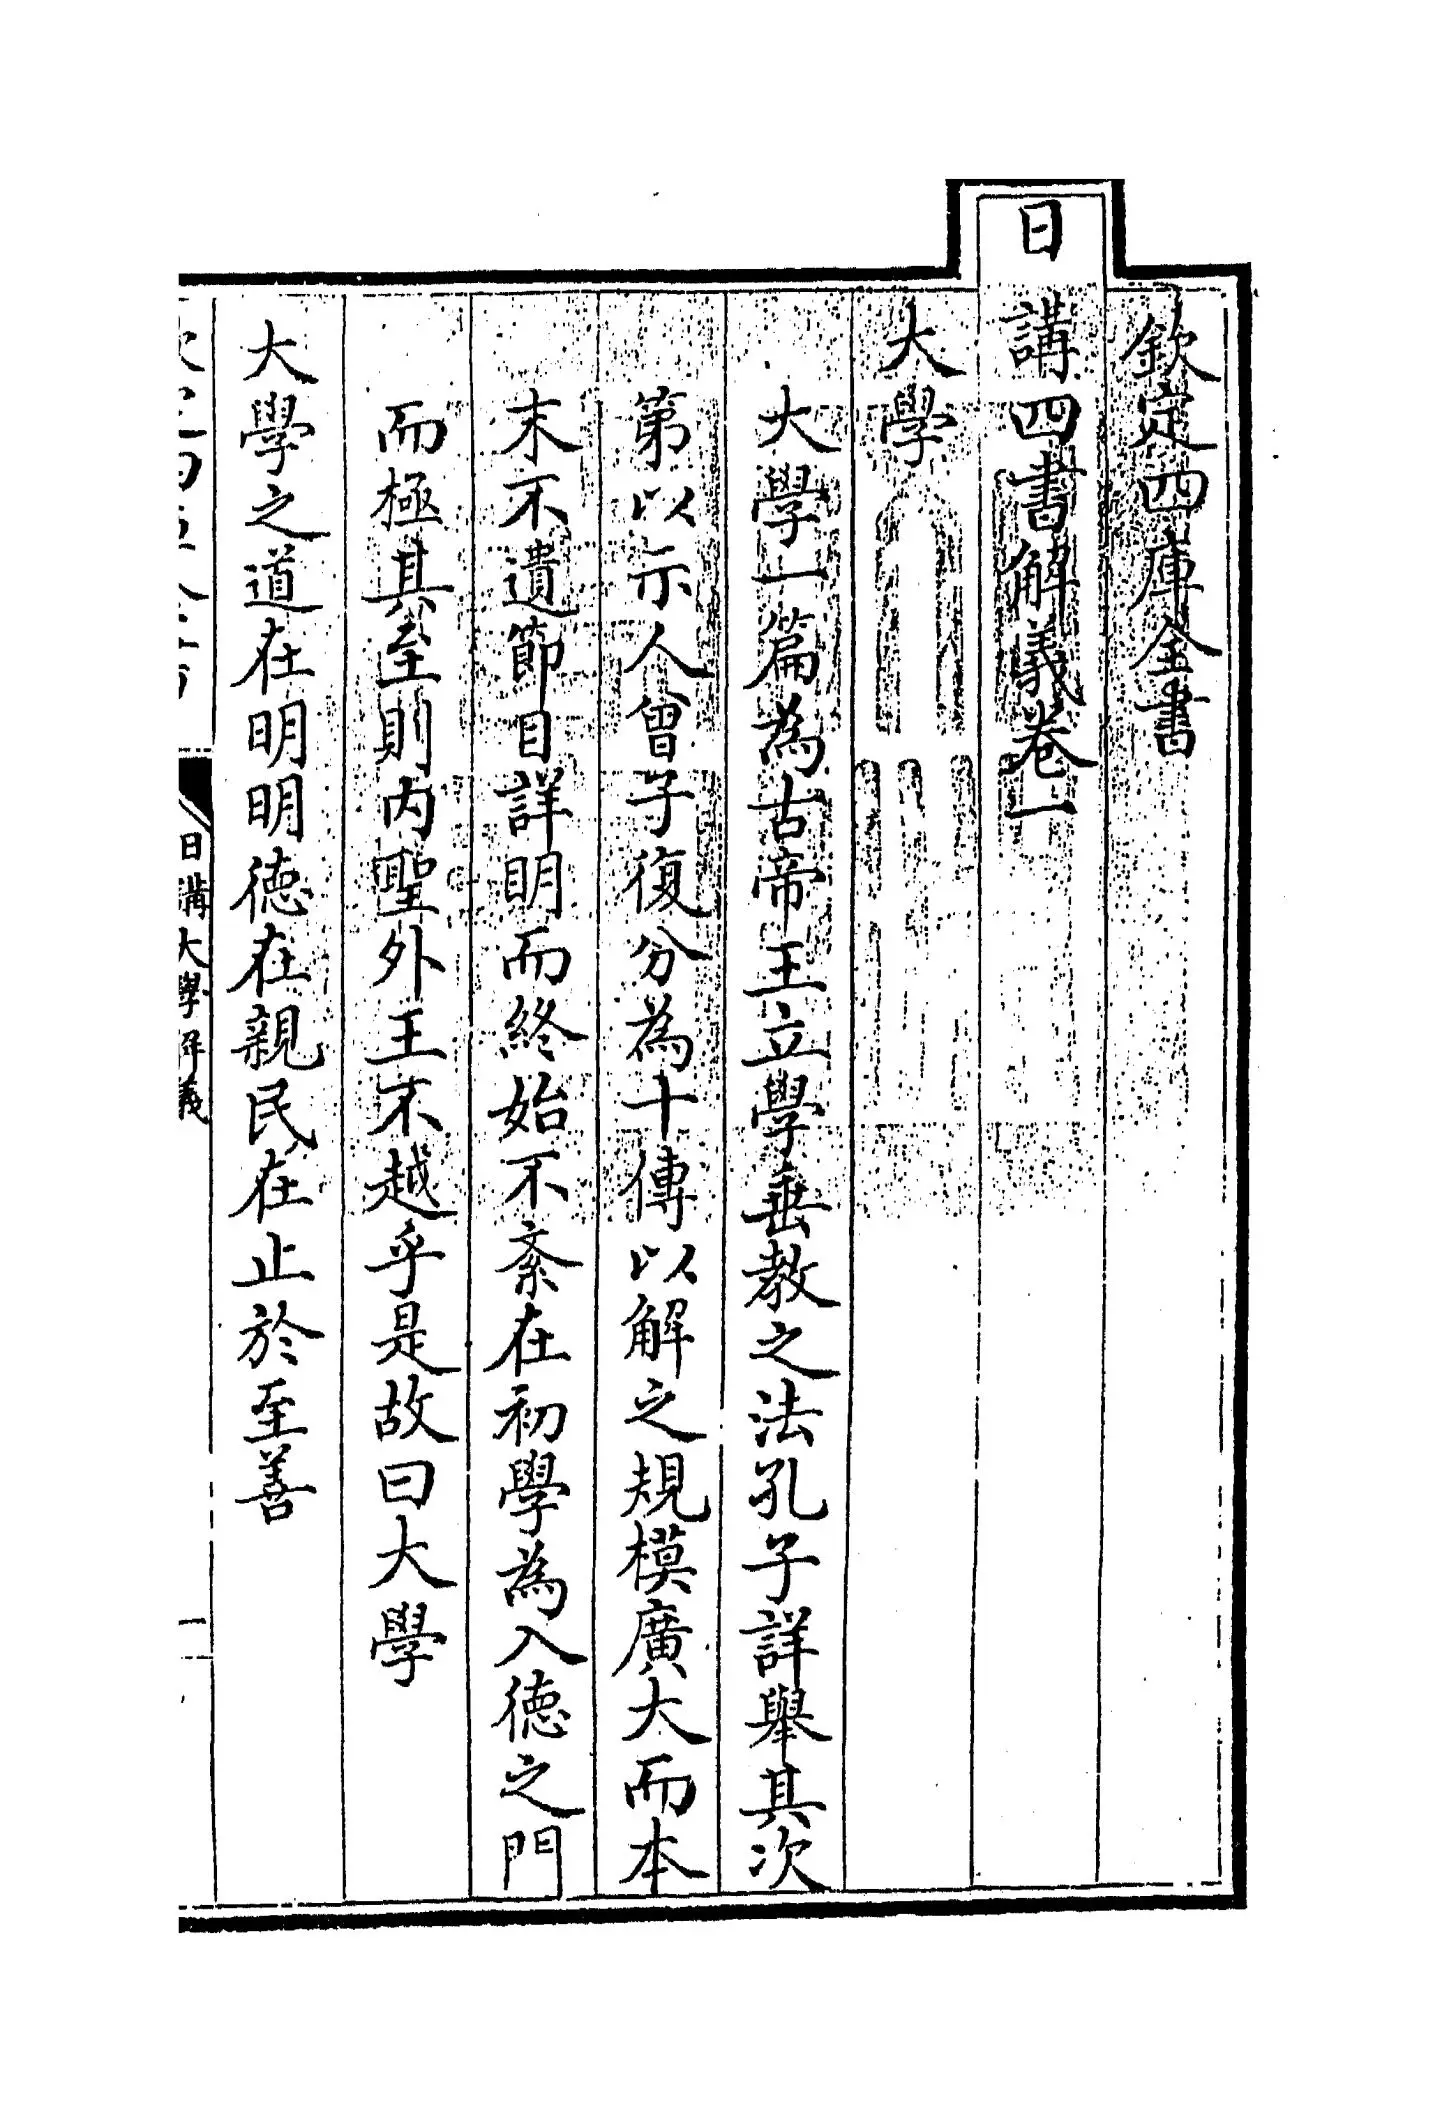 欽定四庫全書
日講四書解義卷一
大學
大學一篇為古帝王立學垂教之法孔子詳舉其次
第以示人曾子復分為十傳以解之規模廣大而本
末不遺節目詳明而終始不紊在初學為入德之門
而極其至則内聖外王不越乎是故曰大學
大學之道在明明德在親民在止於至善
日講大學解義
一